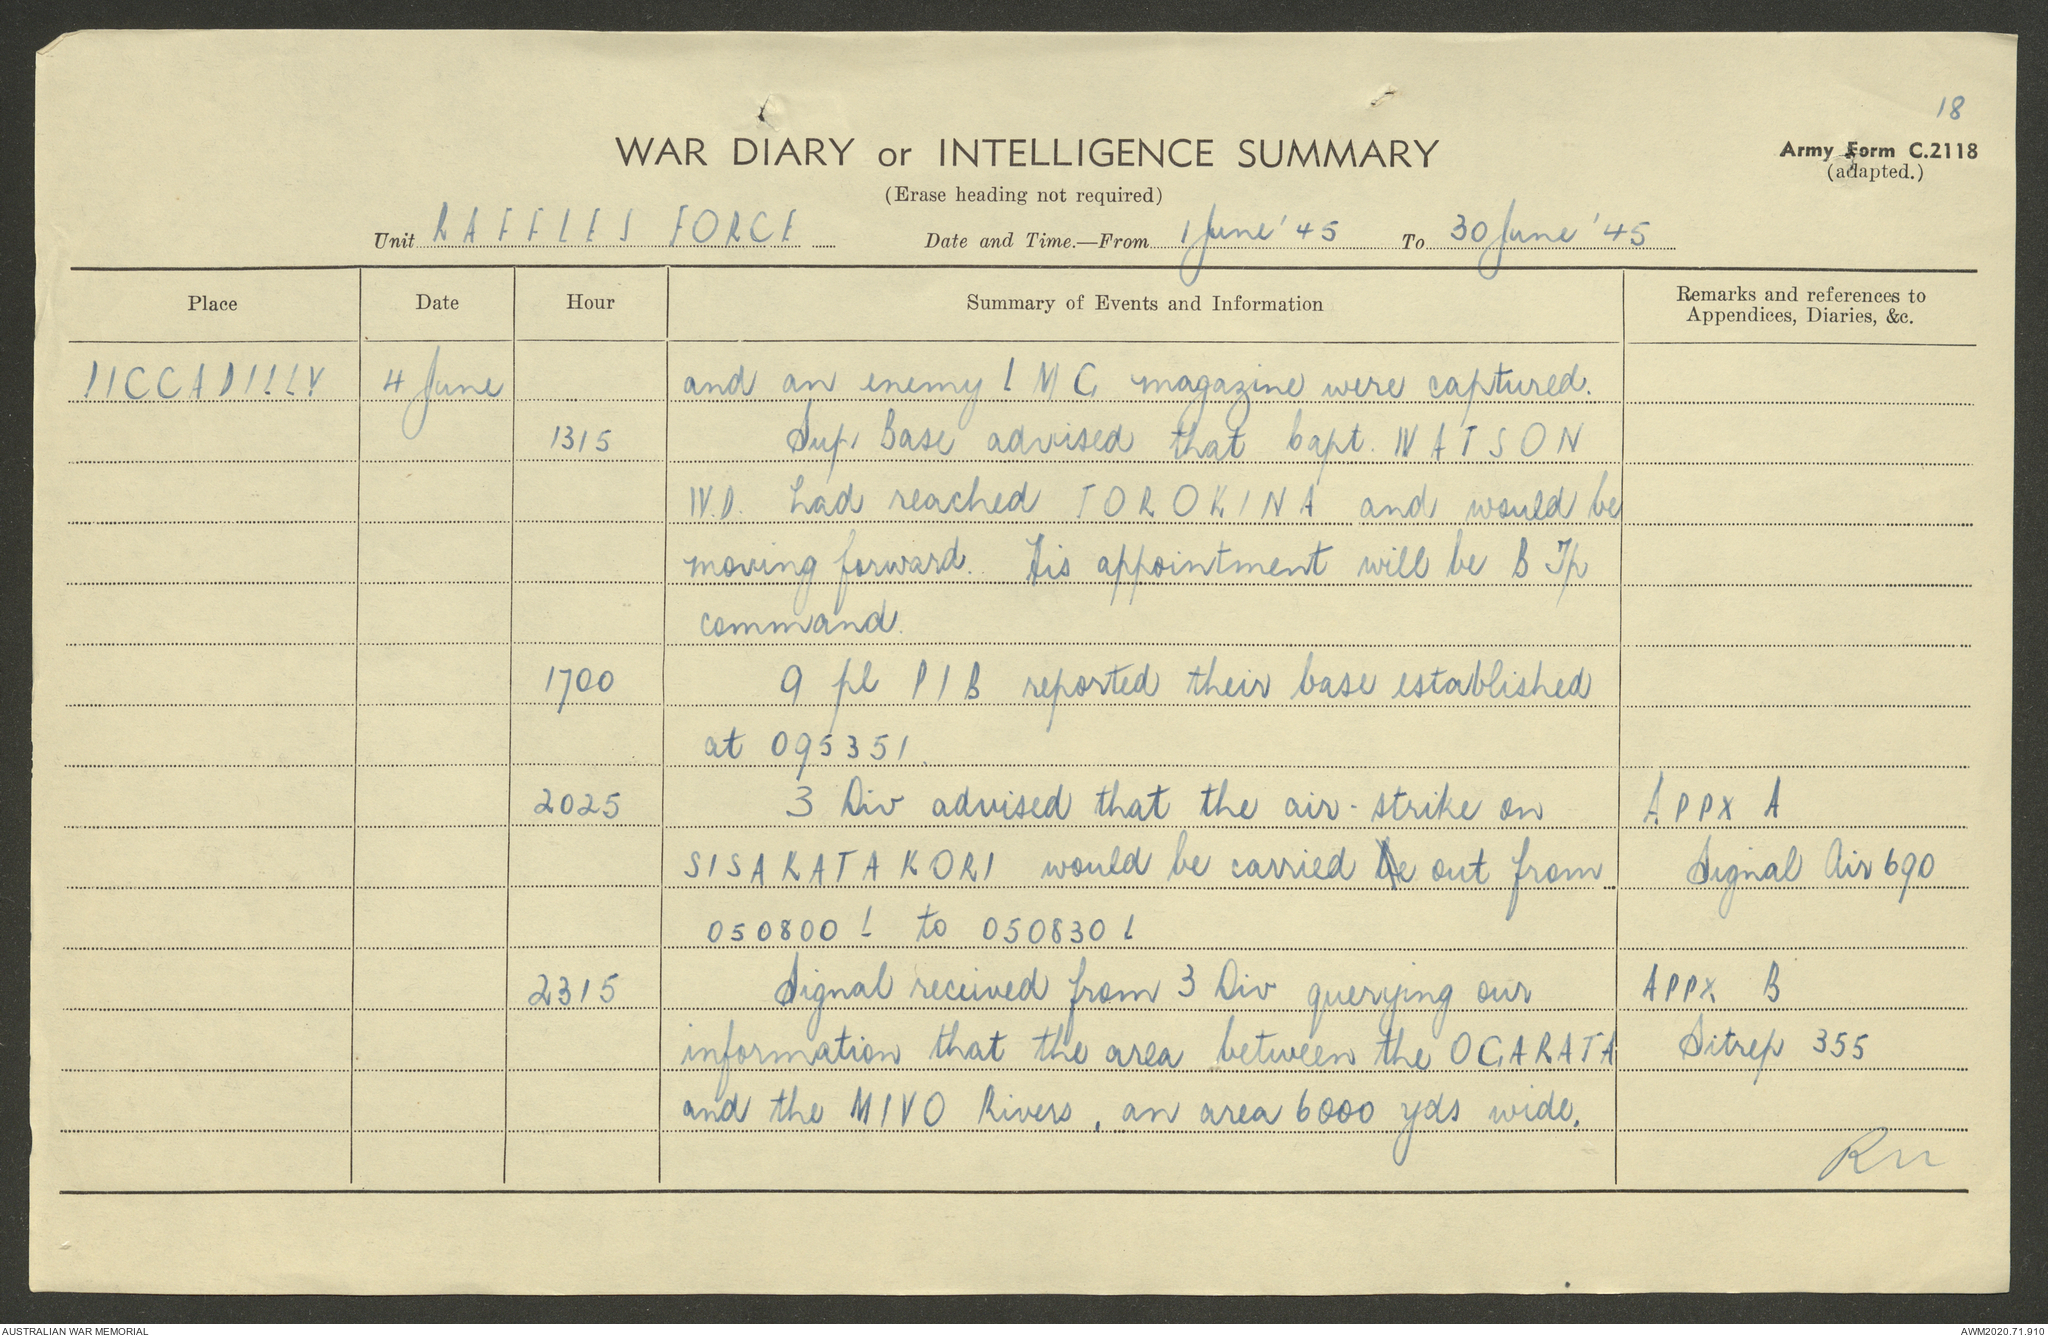 18
WAR DIARY or INTELLIGENCE SUMMARY
Army Form C.2118
(adapted.)
(Erase heading not required)
Unit RAFFLES FORCE Date and Time.—From 1 June '45 To 30 June '45
Place Date Hour Summary of Events and Information Remarks and references to Appendices, Diaries, &c.
PICCADILLY 4 June and an enemy LMG magazine were captured.
1315 Sup. Base advised that Capt. WATSON
W.D. had reached TOROKINA and would be
moving forward. His appointment will be B Tp
command.
1700 9 pl PIB reported their base established
at 095351.
2025 3 Div advised that the air-strike on APPX A
SISAKATAKORI would be carried out from Signal Air 690
050800 L to 050830 L
2315 Signal received from 3 Div querying our APPX B
information that the area between the OGARATA Sitrep 355
and the MIVO Rivers, an area 6000 yds wide,
AUSTRALIAN WAR MEMORIAL
AWM2020.71.910